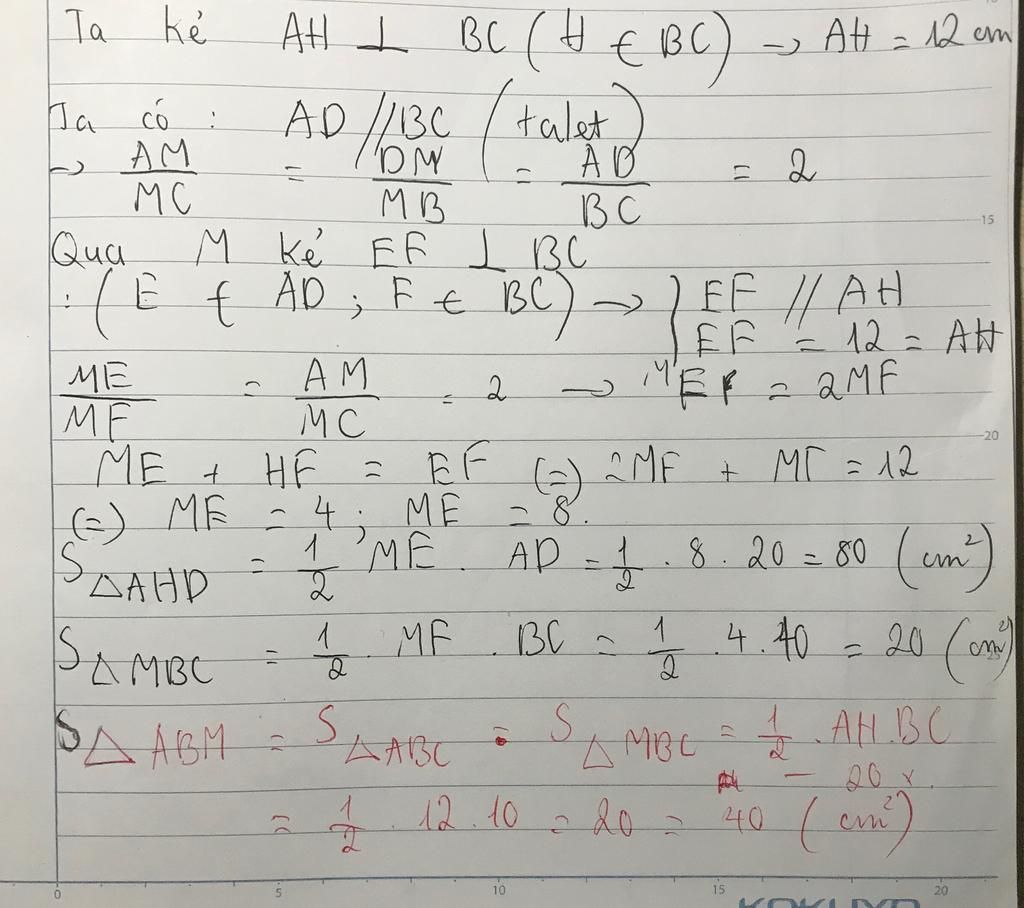 Ta kẻ AH ⊥ BC ( H ∈ BC) → AH = 12 cm
Ta có : AD // BC ( talet)
→ AM/MC = DM/MB = AD/BC = 2
Qua M kẻ EF ⊥ BC
: ( E ∈ AD ; F ∈ BC) → } EF // AH
EF = 12 = AH
ME/MF = AM/MC = 2 → ME = 2MF
ME + HF = EF (=) 2MF + MF = 12
(=) MF = 4 ; ME = 8.
S △AHD = 1/2 ME . AD = 1/2 . 8 . 20 = 80 (cm²)
S △MBC = 1/2 . MF . BC = 1/2 . 4 . 10 = 20 (cm²)
S △ABM = S △ABC - S △MBC = 1/2 . AH.BC
— 20
= 1/2 . 12 . 10 = 20 = 40 (cm²)
15
20
0 5 10 15 20
KOKUYO